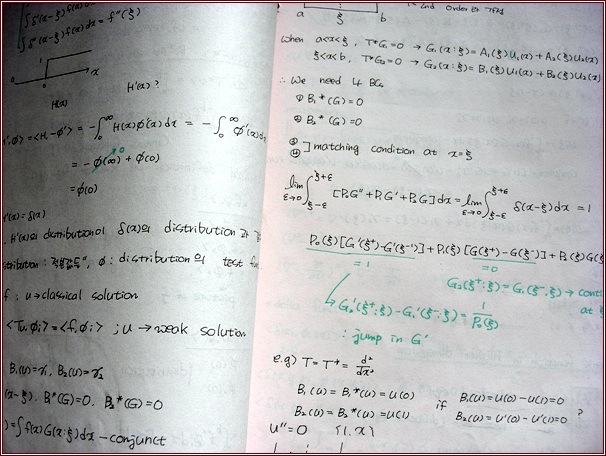 ∫δ''(x-ξ)f(x)dx = f''(ξ)
0
1
0
x
H(x)
H'(x) ?
',φ> = <H, -φ'> = -∫₀^∞ H(x)φ'(x)dx = -∫₀^∞ φ'(x)dx
= -φ(∞) + φ(0)
0
= φ(0)
H'(x) = δ(x)
H'(x)의 distribution이 δ(x)의 distribution과
φ : distribution의 test
f : u → classical solution
<Tu, φᵢ> = <f, φᵢ> ; u → weak solution
B₁(u)=γ₁, B₂(u)=γ₂
(x-ξ), B₁*(G)=0, B₂*(G)=0
) = ∫f(x)G(x:ξ)dx - conjunct
a ξ b
2nd order
when a<x<ξ, T*G₁=0 → G₁(x:ξ) = A₁(ξ)U₁(x) + A₂(ξ)U₂(x)
ξ<x<b, T*G₂=0 → G₂(x:ξ) = B₁(ξ)U₁(x) + B₂(ξ)U₂(x)
∴ We need 4 BCs
① B₁*(G)=0
② B₂*(G)=0
③
④ ] matching condition at x=ξ
lim ε→0 ∫_{ξ-ε}^{ξ+ε} [P₀G'' + P₁G' + P₂G]dx = lim ε→0 ∫_{ξ-ε}^{ξ+ε} δ(x-ξ)dx = 1
P₀(ξ)[G'(ξ⁺)-G'(ξ⁻)] + P₁(ξ)[G(ξ⁺)-G(ξ⁻)] + P₂(ξ)G(ξ
= 1
= 0
G₂(ξ⁺:ξ) = G₁(ξ⁻:ξ) → cont
at ξ
→ G₂'(ξ⁺:ξ) - G₁'(ξ⁻:ξ) = 1/P₀(ξ)
: jump in G'
e.g) T = T* = d²/dx²
B₁(u) = B₁*(u) = u(0)
if B₁(u) = u(0) - u(1) = 0
B₂(u) = B₂*(u) = u(1)
B₂(u) = u'(0) - u'(1) = 0 ?
u'' = 0 {1, x}